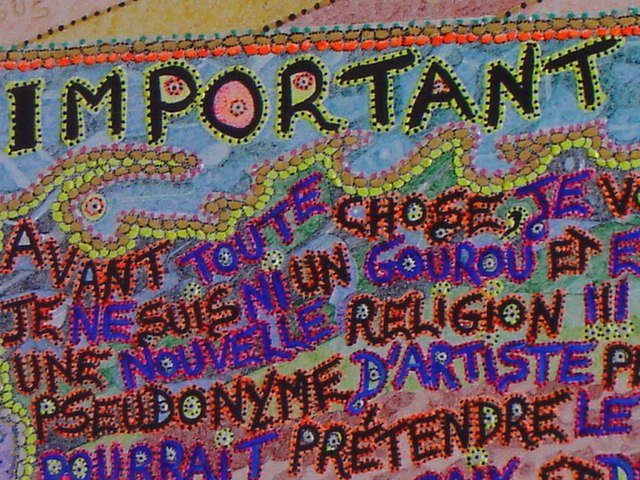 IMPORTANT
AVANT TOUTE CHOSE, JE
JE NE SUIS NI UN GOUROU ET
UNE NOUVELLE RELIGION !!!
PSEUDONYME D'ARTISTE
POURRAIT PRÉTENDRE LE